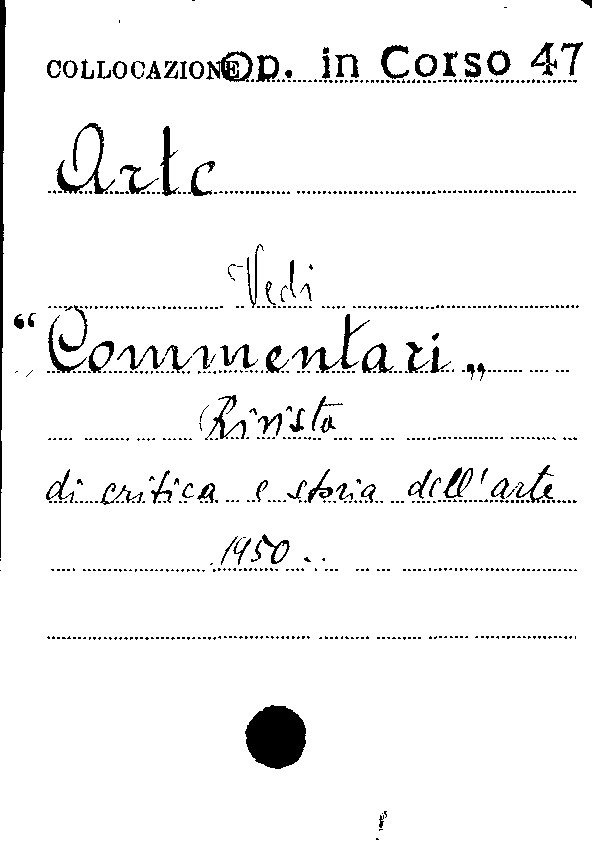 COLLOCAZIONE Op. in Corso 47
Arte
Vedi
“Commentari„
Rivista
di critica e storia dell'arte
1950..